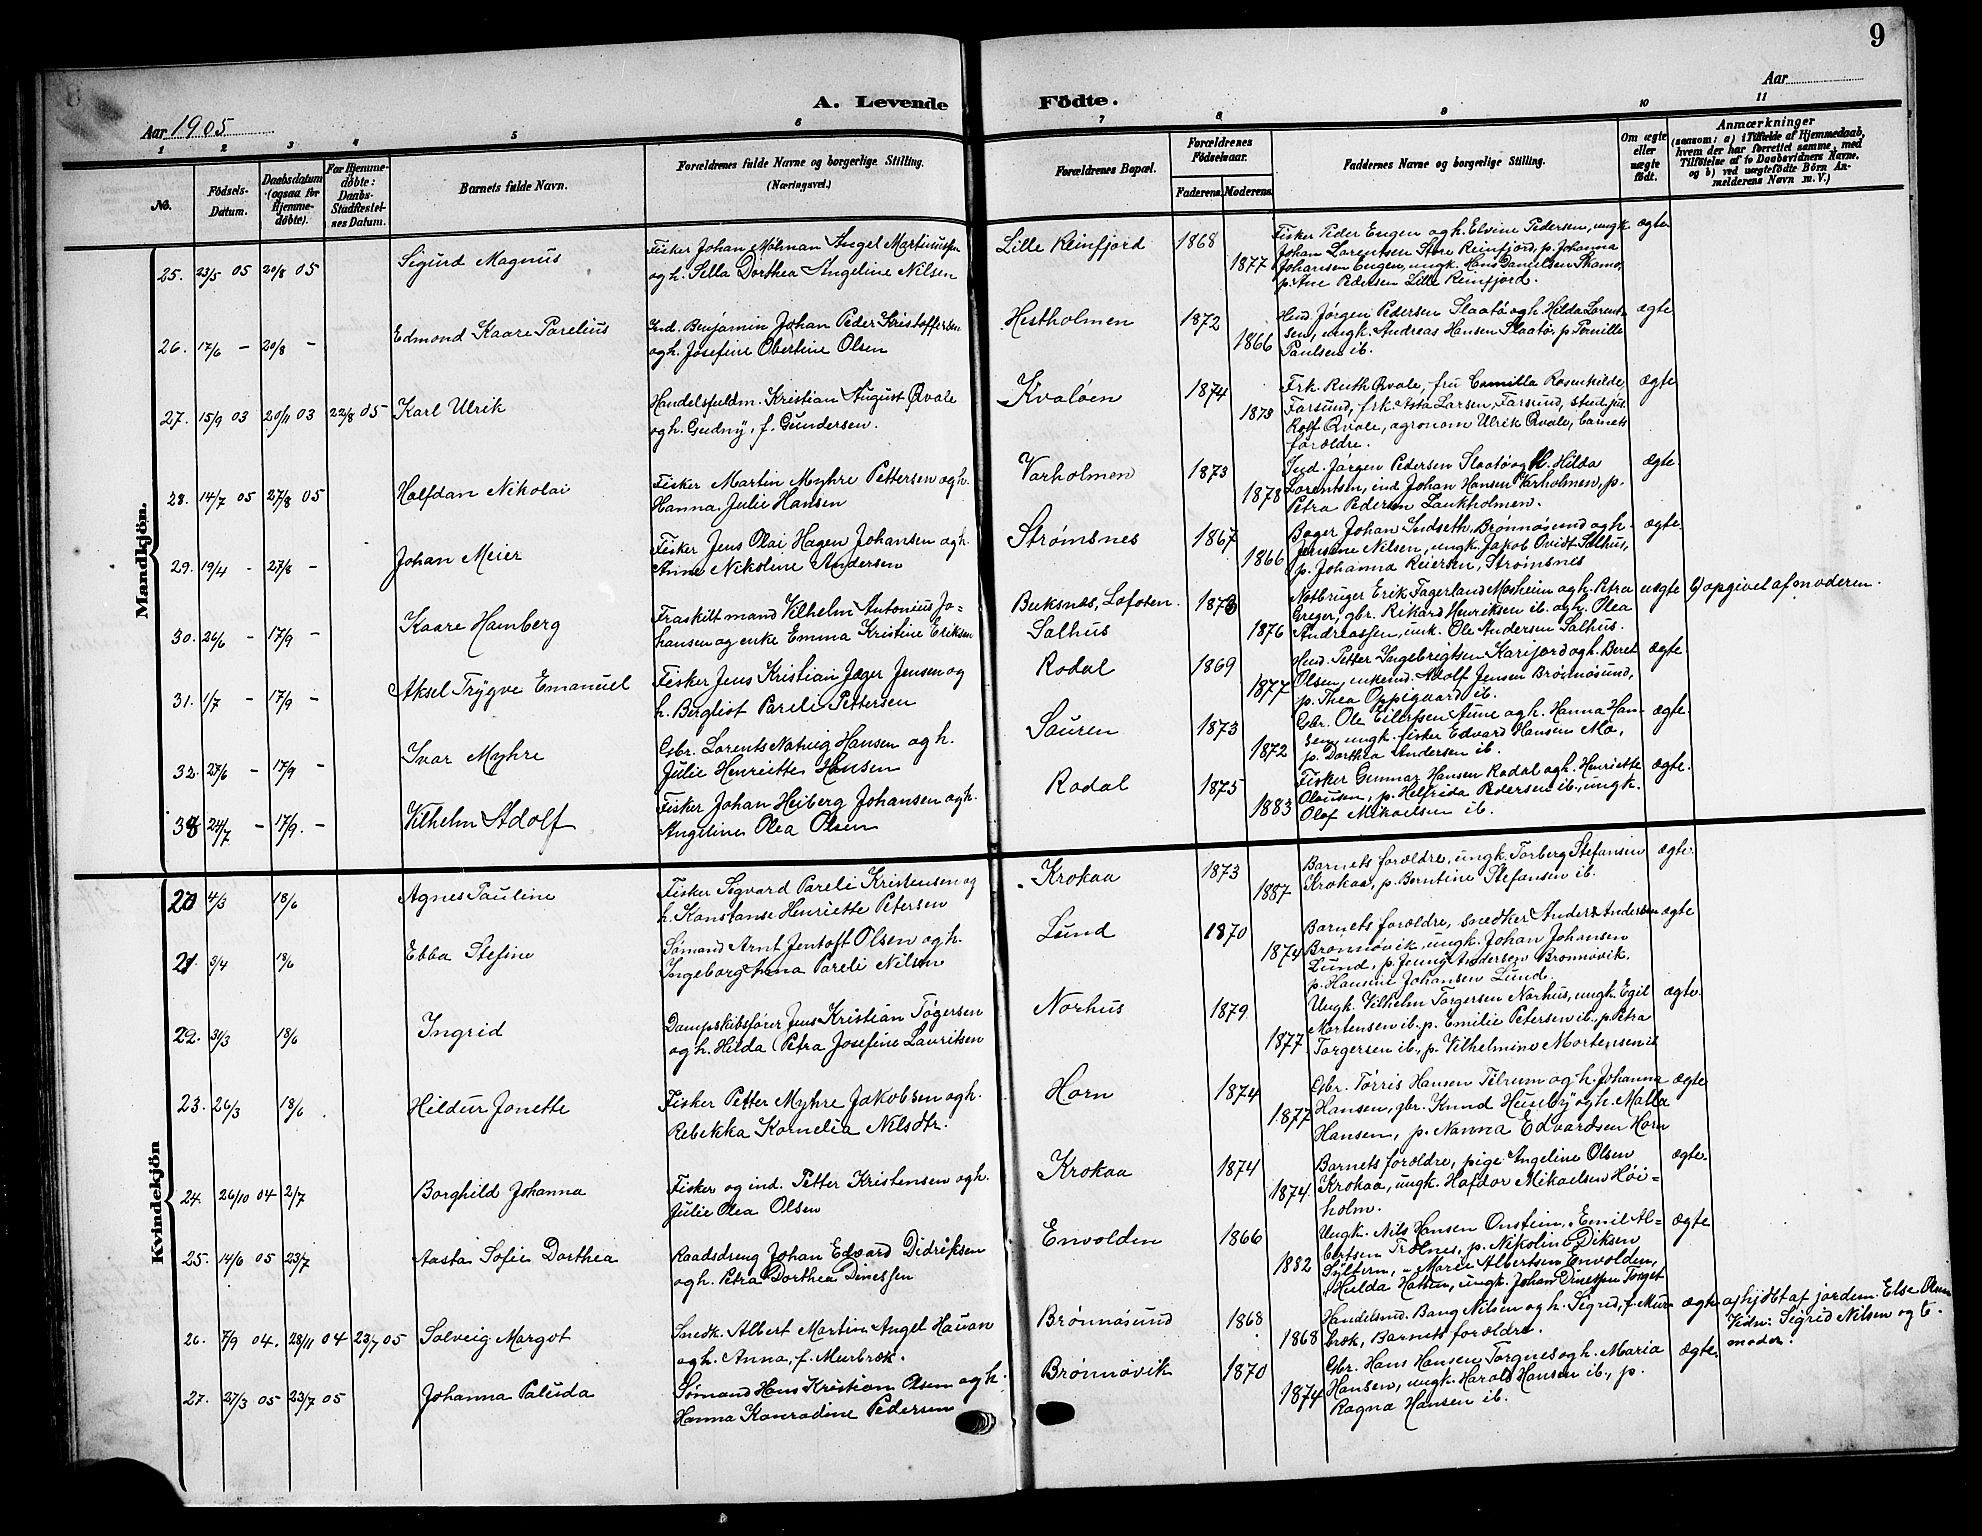 9
A. Levende Fødte.
Aar 1905
Aar
1 2 3 4 5 6 7 8 9 10 11
No.
Fødsels-Datum.
Daabsdatum (ogsaa for Hjemmedøbte).
For Hjemmedøbte: Daabs-Stadfæstelses Datum.
Barnets fulde Navn.
Forældrenes fulde Navne og borgerlige Stilling. (Næringsvei.)
Forældrenes Bopæl.
Forældrenes Fødselsaar.
Faderens. Moderens.
Faddernes Navne og borgerlige Stilling.
Om ægte eller uægte født.
Anmærkninger
(saasom: a) i Tilfælde af Hjemmedaab, hvem der har forrettet samme, med Tilføielse af to Daabsvidners Navne, og b) ved uægtefødte Børn Anmelderens Navn m. V.)
Mandkjön.
25. 23/5 05 20/8 05 Sigurd Magnus
Fisker Johan Molman Angel Martinussen
og h. Silla Dorthea Angeline Nilsen
Lille Reinfjord 1868 1877
Fisker Peder Engen og h. Elvine Pedersen, ungk.
Johan Lorentsen Store Reinfjord, p. Johanna
Johansen Engen, ungk. Hans Danielsen
p. Ane Pedersen Lille Reinfjord.
ægte
26. 17/6 - 20/8 - Edmond Kaare Parelius
Ind. Benjamin Johan Peder Kristoffersen
og h. Josefine Obertine Olsen
Hestholmen 1872 1866
Ind. Jørgen Pedersen Slaatø og h. Hilda Lorent-
sen, ungk. Andreas Hansen Slaatø, p. Pernille
Paulsen ib.
ægte
27. 15/9 03 20/11 03 22/8 05 Karl Ulrik
Handelsfuldm. Kristian August Qvale
og h. Gudny, f. Gundersen.
Kvaløen 1874 1875
Frk. Ruth Qvale, fru Camilla Rosenkilde,
Farsund, frk. Asta Larsen, Farsund, stud. jur.
Rolf Qvale, agronom Ulrik Qvale, barnets
forældre.
ægte
28. 14/7 05 27/8 05 Halfdan Nikolai
Fisker Martin Myhre Pettersen og h.
Hanna Julie Hansen
Varholmen 1873 1878
Ind. Jørgen Pedersen Slaatø og h. Hilda
Lorentsen, ind. Johan Hansen Varholmen, p.
Petra Pedersen Laukholmen.
ægte.
29. 19/4 - 27/8 - Johan Meier
Fisker Jens Olai Hagen Johansen og h.
Anne Nikoline Andersen
Strømsnes 1867 1866
Bager Johan Indseth, Brønnøsund og h.
Jensine Nilsen, ungk. Jakob Ovidt Salhus,
p. Johanna Reiersen, Strømsnes
ægte.
30. 26/6 - 17/9 - Kaare Hamberg
Fraskilt mand Vilhelm Antonius Jo-
hansen og enke Emma Kristine Eriksen
Buksnes, Lofoten. 1873
Salhus 1876
Notbruger Erik Fagerland Mosheim og h. Petra
Greger, gbr. Rikard Henriksen ib. og h. Olea
Andreassen, unk. Ole Andersen Salhus.
uægte b) opgivet af moderen.
31. 1/7 - 17/9 - Aksel Trygve Emanuel
Fisker Jens Kristian Jæger Jensen og
h. Bergliot Pareli Pettersen
Rodal 1869 1877
Ind. Petter Ingebrigtsen Karifjord og h. Beret
Olsen, enkem. Adolf Jensen Brønnøsund,
p. Thea Oppigaard ib.
ægte.
32. 27/6 - 17/9 - Ivar Myhre
Gbr. Lorents Natvig Hansen og h.
Julie Henriette Hansen
Sauren 1873 1872
Gbr. Ole Eilertsen Aune og h. Hanna Han-
sen, ungk. fisker Edvard Hansen Mo,
p. Dorthea Andersen ib.
ægte.
33 24/7 - 17/9. - Vilhelm Adolf
Fisker Johan Heiberg Johansen og h.
Angeline Olea Olsen
Rodal 1875 1883
Fisker Gunnar Hansen Rodal og h. Henriette
Olausen, p. Helfrida Pedersen ib., ungk.
Olaf Mikaelsen ib.
ægte.
Kvindekjön
20 4/3 18/6 Agnes Pauline
Fisker Segvard Pareli Kristensen og
h. Konstanse Henriette Petersen
Krokaa 1873 1887
Barnets forældre, ungk. Torberg Stefansen
Krokaa, p. Berntine Stefansen ib.
ægte.
21. 3/4 18/6 Ebba Stefine
Sømand Arnt Jentoft Olsen og h.
Ingeborg Anna Pareli Nilsen
Lund 1870 1874
Barnets forældre, snedker Anders Andersen
Brønnøvik, ungk. Johan Johansen
Lund, p. Jenny Andersen Brønnøvik,
p. Hansine Johansen Lund.
ægte
22. 31/3 18/6 Ingrid
Dampskibsfører Jens Kristian Tøgersen
og h. Hilda Petra Josefine Lauritsen
Norhus 1879 1877
Ungk. Vilhelm Torgersen Norhus, ungk. Egil
Mortensen ib. p. Emilie Petersen ib., p. Petra
Torgersen ib., p. Vilhelmine Mortensen ib
ægte.
23. 26/3 18/6 Hildur Jonette
Fisker Petter Myhre Jakobsen og h.
Rebekka Kornelia Nilsdtr.
Horn 1874 1877
Gbr. Tørris Hansen Tilrum og h. Johanna
Hansen, gbr. Knud Huseby og h. Malla
Hansen, p. Nanna Edvardsen Horn
ægte
24. 26/10 04 2/7 Borghild Johanna
Fisker og ind. Petter Kristensen og h.
Julie Olea Olsen
Krokaa 1874 1874
Barnets forældre, pige Angeline Olsen
Krokaa, ungk. Hafdor Mikaelsen Høi-
holm.
ægte.
25. 14/6 05 23/7 Aasta Sofie Dorthea
Raadsdreng Johan Edvard Didriksen
og h. Petra Dorthea Dinessen
Envolden 1866 1882
Ungk. Nils Hansen Onstein, " Emil Al-
bertsen Trælnes, p. Nikoline Diksen
Sýltern, " Marie Albertsen Envolden,
" Hulda Hansen, ungk. Johan Dinessen Torget
ægte
26. 7/9 04. 28/11 04 23/7 05 Solveig Margot
Snedk. Albert Martin Angel Hauan
og h. Anna, f. Murbræk.
Brønnøsund 1868 1868
Handelsmd. Bang Nilsen og h. Sigrid, f. Mur-
bræk, Barnets forældre.
ægte a) hjdbt af jordem. Else Olsen
Vidn: Sigrid Nilsen og b.
moder.
27. 27/3 05 23/7 05 Johanna Paluda
Sømand Hans Kristian Olsen og h.
Hanna Konradine Pedersen
Brønnøvik 1870 1874
Gbr. Hans Hansen Torgnes og h. Maria
Hansen, ungk. Harald Hansen ib., p.
Ragna Hansen ib.
ægte.